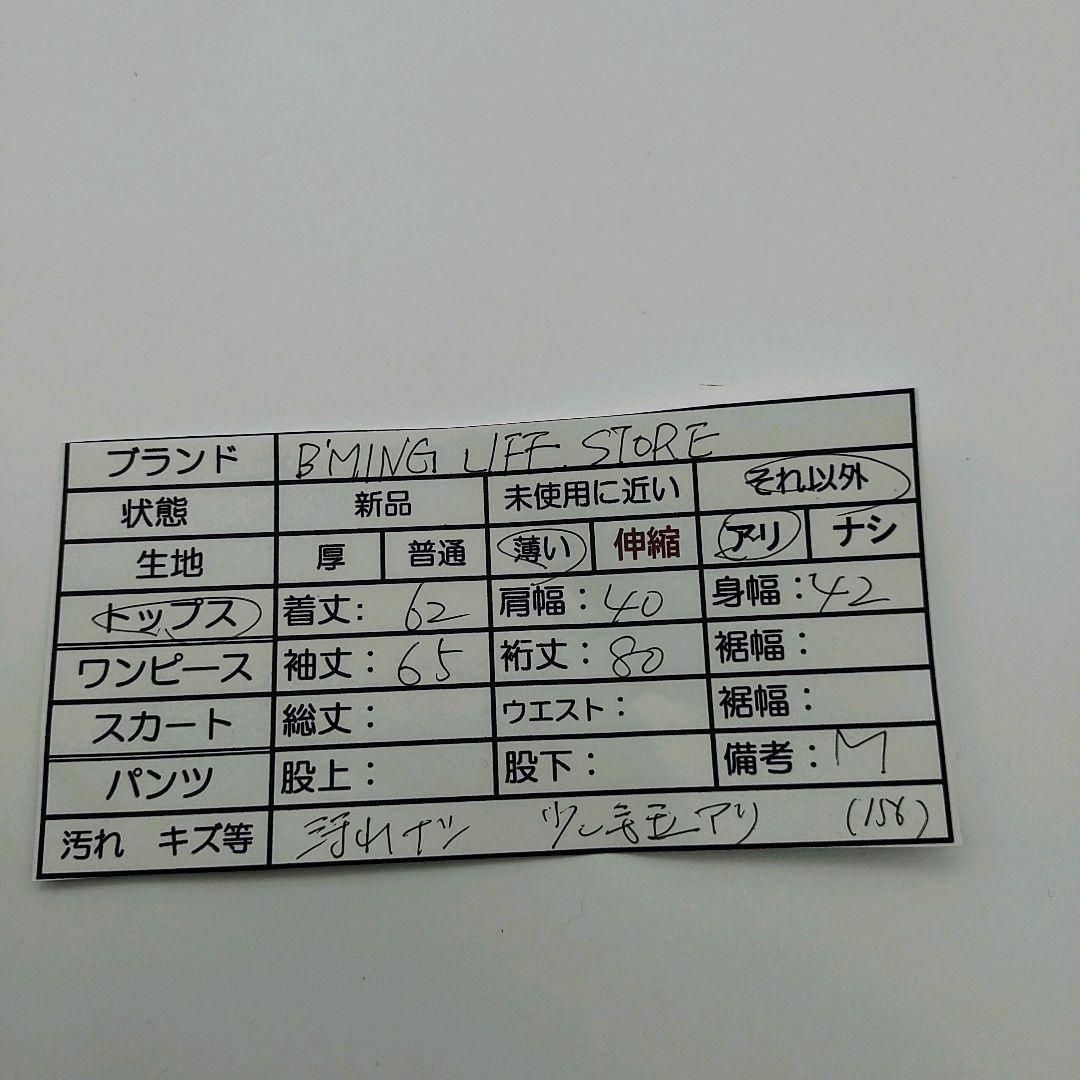 ブランド B'MING LIFE. STORE
状態 新品 未使用に近い それ以外
生地 厚 普通 薄い 伸縮 アリ ナシ
トップス 着丈: 62 肩幅: 40 身幅: 42
ワンピース 袖丈: 65 裄丈: 80 裾幅:
スカート 総丈: ウエスト: 裾幅:
パンツ 股上: 股下: 備考: M
汚れ キズ等 汚れナシ 少し毛玉アリ